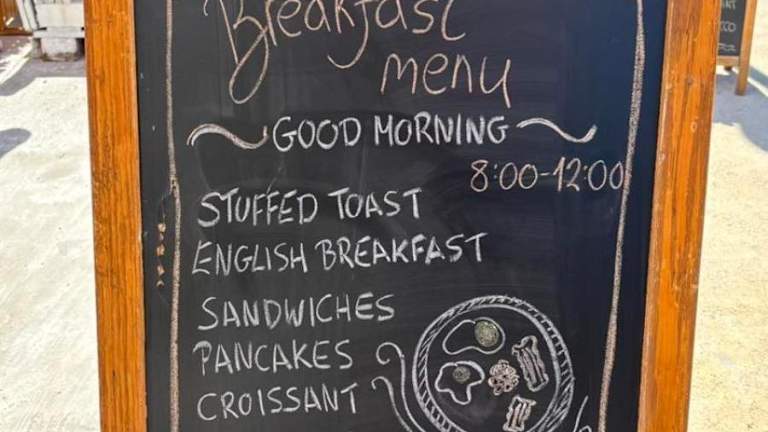 Breakfast
menu
GOOD MORNING
8:00-12:00
STUFFED TOAST
ENGLISH BREAKFAST
SANDWICHES
PANCAKES
CROISSANT